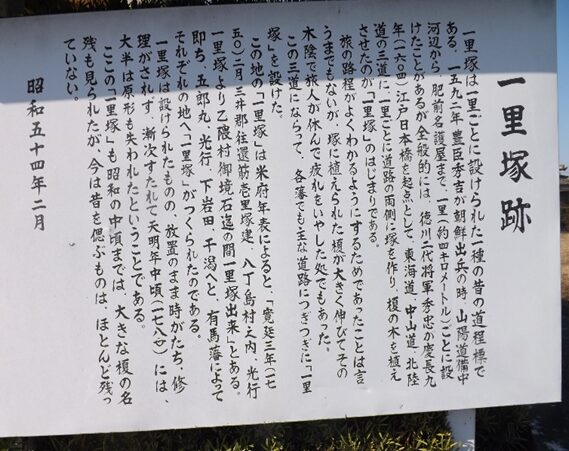 一里塚跡
一里塚は一里ごとに設けられた一種の昔の道程標で
ある。一五九二年 豊臣秀吉が朝鮮出兵の時、山陽道備中
河辺から、肥前名護屋まで、一里(約四キロメートル)ごとに設
けたことがあるが、全般的には、徳川二代将軍秀忠が慶長九
年(一六〇四)江戸日本橋を起点として、東海道、中山道、北陸
道の三道に、一里ごとに道路の両側に塚を作り、榎の木を植え
させたのが「一里塚」のはじまりである。
旅の路程がよくわかるようにするためであったことは言
うまでもないが、塚に植えられた榎が大きく伸びてその
木陰で旅人が休んで疲れをいやした処でもあった。
この三道にならって、各藩でも主な道路につぎつぎに「一里
塚」を設けた。
この地の「一里塚」は米府年表によると、「寛延三年(一七
五〇)二月三井郡往還筋壱里塚建、八丁島村之内、光行
一里塚より乙隈村御境石迄の間一里塚出来」とある。
即ち、五郎丸、光行、下岩田、干潟へと、有馬藩によって
それぞれの地へ「一里塚」がつくられたのである。
一里塚は設けられたものの、放置のまま時がたち、修
理がされず、漸次すたれて天明年中頃(一七八〇)には、
大半は原形も失われたということである。
ここの「一里塚」も昭和の中頃までは、大きな榎の名
残も見られたが、今は昔を偲ぶものは、ほとんど残っ
ていない。
昭和五十四年二月